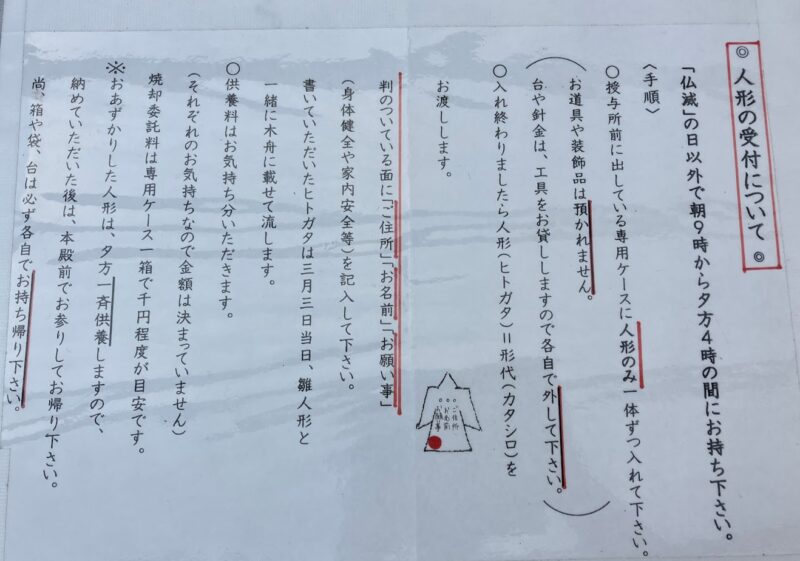 ◎人形の受付について◎
「仏滅」の日以外で朝9時から夕方4時の間にお持ち下さい。
〈手順〉
○授与所前に出している専用ケースに人形のみ一体ずつ入れて下さい。
(お道具や装飾品は預かれません。
台や針金は、工具をお貸ししますので各自で外して下さい。)
○入れ終わりましたら人形(ヒトガタ)=形代(カタシロ)を
お渡しします。
ご住所
お名前
お願い事
判のついている面に「ご住所」「お名前」「お願い事」
(身体健全や家内安全等)を記入して下さい。
書いていただいたヒトガタは三月三日当日、雛人形と
一緒に木舟に載せて流します。
○供養料はお気持ち分いただきます。
(それぞれのお気持ちなので金額は決まっていません)
焼却委託料は専用ケース一箱で千円程度が目安です。
※おあずかりした人形は、夕方一斉供養しますので、
納めていただいた後は、本殿前でお参りしてお帰り下さい。
尚、箱や袋、台は必ず各自でお持ち帰り下さい。